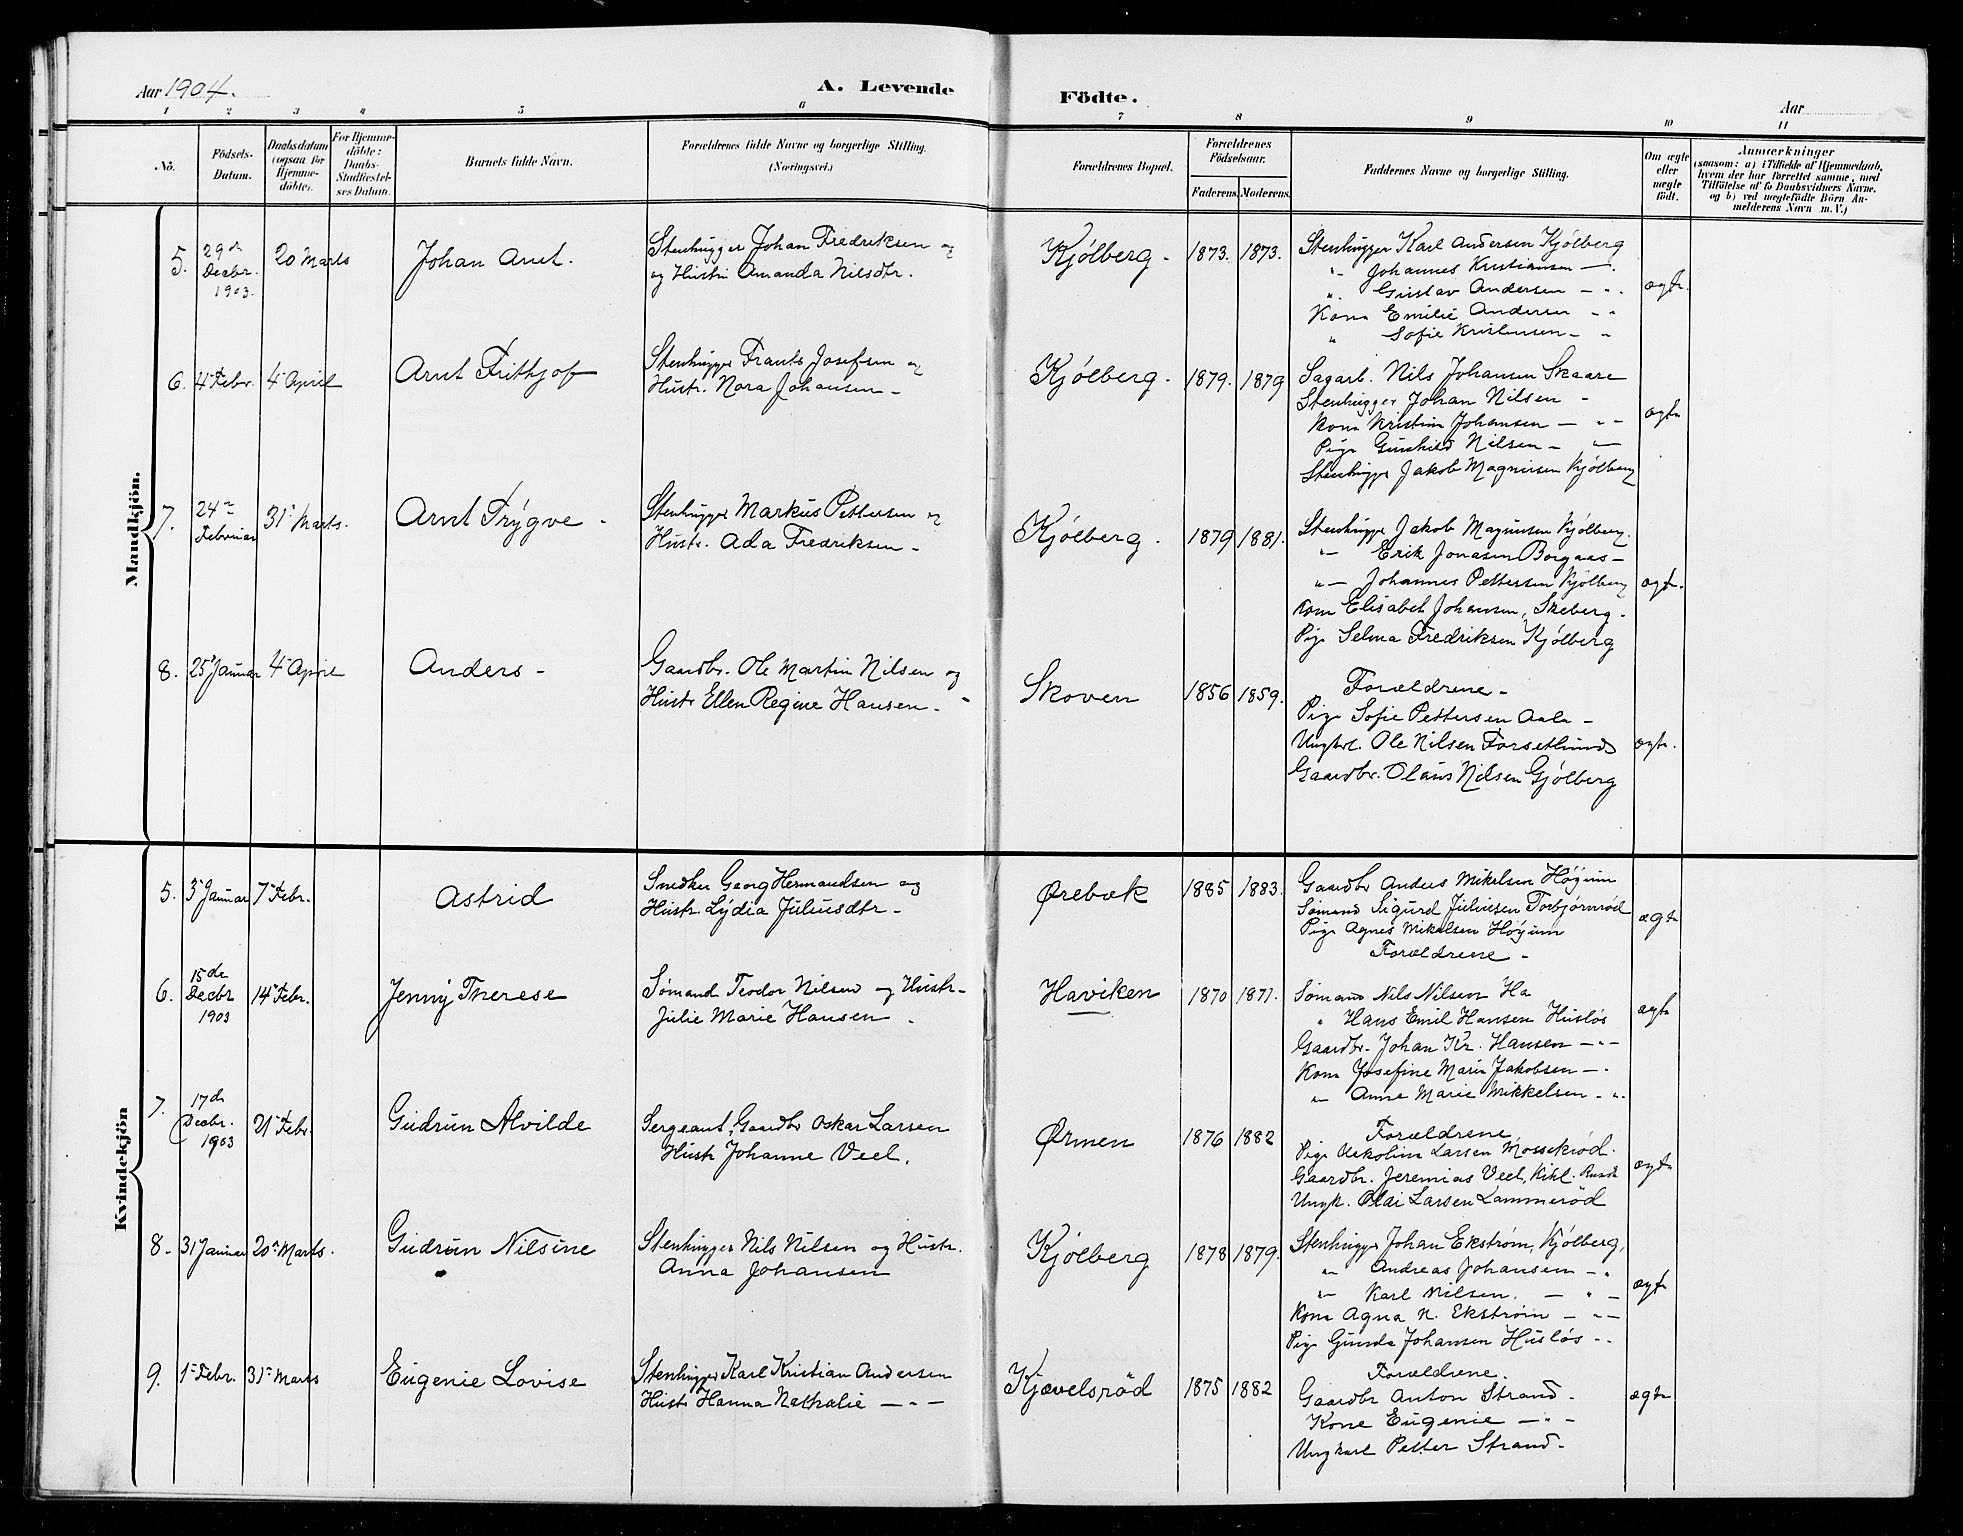 Aar 1904.
A. Levende Födte.
Aar
1 2 3 4 5 6 7 8 9 10 11
No.
Födsels-
Datum.
Daabsdatum
(ogsaa for
Hjemme-
döbte).
For Hjemme-
döbte:
Daabs-
Stadfæstel-
ses Datum.
Barnets fulde Navn.
Forældrenes fulde Navne og borgerlige Stilling.
(Næringsvei.)
Forældrenes Bopæl.
Forældrenes
Födselsaar.
Faderens. Moderens.
Faddernes Navne og borgerlige Stilling.
Om ægte
eller
uægte
födt.
Anmærkninger
(saasom: a) i Tilfælde af Hjemmedaab,
hvem der har forrettet samme, med
Tilföielse af to Daabsvidners Navne,
og b) ved uægtefödte Börn An-
melderens Navn m. V.)
Mandkjön.
5. 29de Decbr. 1903. 20 Marts
Johan Arnt.
Stenhugger Johan Fredriksen og
og Hustru Amanda Nilsdtr.
Kjølberg - 1873. 1873.
Stenhugger Karl Andersen Kjølberg
" Johannes Kristiansen —.
" Gustav Andersen — ".
Kone Emilie Andersen - "
" Sofie Kristensen - "
ægte.
6. 4de Febr. 4de April
Arnt Frithjof
Stenhugger Frants Josefsen og
Hustr. Nora Johansen -
Kjølberg. 1879. 1879
Sagarb. Nils Johansen Skaare
Stenhugger Johan Nilsen -
Kone Kristine Johansen — " -
Pige Gunhild Nilsen - " -
Stenhugger Jakob Magnusen Kjølberg
ægte
7. 24de Februar 31te Marts.
Arnt Trygve -
Stenhugger Markus Pettersen og
Hustr. Ada Fredriksen -
Kjølberg. 1879 1881.
Stenhugger Jakob Magnusen Kjølberg.
" - Erik Jonasen Borgaas -
" - Johannes Pettersen Kjølberg
Kone Elisabet Johansen, Skeberg.
Pige Selma Fredriksen Kjølberg
ægte.
8. 25de Januar 4de April
Anders -
Gaardbr. Ole Martin Nilsen og
Hustr Ellen Regine Hansen -
Skoven 1856 1859.
Forældrene -
Pige Sofie Pettersen Aale -
Ungkrl. Ole Nilsen Forsetlund
Gaardbr. Olaus Nilsen Gjølberg
ægte.
Kvindekjön
5. 3de Januar 7de Febr.
Astrid
Snedker Georg Hermandsen og
Hustr Lydia Juliusdtr -
Ørebæk 1885 1883.
Gaardbr Anders Mikelsen Høgum
Sømand Sigurd Juliusen Torbjørnrød
Pige Agnes Mikelsen Høgum
Forældrene -
ægte
6. 15de Decbr 1903 14de Febr.
Jenny Therese
Sømand Teodor Nilsen og Hustr-
Julie Marie Hansen .
Haviken 1870 1871.
Sømand Nils Nilsen Ha
" Hans Emil Hansen Husløs
Gaardbr. Johan Kr. Hansen — " -
Kone Josefine Marie Jakobsen — "
" Anne Marie Mikkelsen - ".
ægte
7. 17de Decbr. 1903 21de Febr.
Gudrun Alvilde
Sergeant, Gaardbr Oskar Larsen
Hustr Johanne Veel.
Ørmen 1876 1882
Forældrene
Pige Larsen Mossekrød.
Gaardbr. Jeremias Veel,
Ungk. Olai Larsen Lammerød
ægte
8- 31 Januar 20de Marts.
Gudrun Nilsine
Stenhugger Nils Nilsen og Hustr.
Anna Johansen
Kjølberg 1878 1879.
Stenhugger Johan Ekstrøm, Kjølberg,
" Andreas Johansen - "
" - Karl Nilsen. — " -
Kone Agna N. Ekstrøm — " -
Pige Gunda Johansen Husløs - -
ægte
9. 1de Febr. 31te Marts
Eugenie Lovise
Stenhugger Karl Kristian Andersen
Hustr Hanna Nathalie — " -
Kjævelsrød 1875 1882
Forældrene.
Gaardbr Anton Strand.
Kone Eugenie — " -
Ungkarl Petter Strand -
ægte